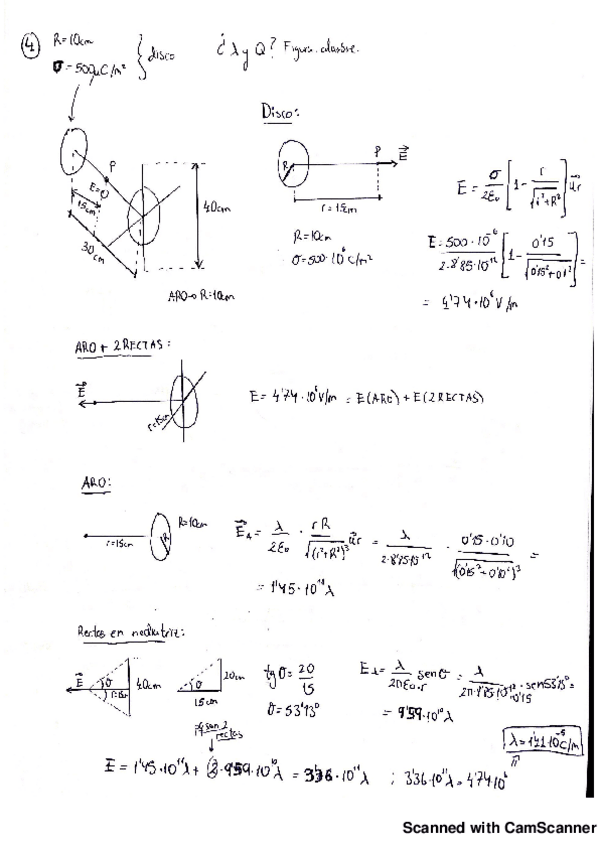 4 R=10cm
σ=500μC/m² } disco ¿λ y Q? Figura alambre.
Disco:
P
E=0
15cm
30cm
40cm
ARO→R=10cm
R
P
E
r=15cm
R=10cm
σ=500·10⁻⁶C/m²
E = σ/2ε₀ [1 - r/√(r²+R²)] ur
E = 500·10⁻⁶/2·8'85·10⁻¹² [1 - 0'15/√(0'15²+0'1²)] =
= 4'74·10⁶ V/m
ARO + 2RECTAS:
E
r=15cm
E = 4'74·10⁶V/m = E(ARO) + E(2RECTAS)
ARO:
R=10cm
r=15cm
R
E = λ/2ε₀ · rR/√(r²+R²)³ ur = λ/2·8'85·10⁻¹² · 0'15·0'10/√(0'15²+0'10²)³ =
= 1'45·10¹¹λ
Rectas en mediatriz:
E
θ
r=15
40cm
θ
20cm
15cm
tgθ = 20/15
θ = 53'13°
E = λ/2πε₀·r senθ = λ/2π·8'85·10⁻¹²·0'15 · sen53'13° =
= 9'59·10¹⁰λ
son 2 rectas
λ = 1'41·10⁻⁵C/m
E = 1'45·10¹¹λ + 2·9'59·10¹⁰λ = 3'36·10¹¹λ ; 3'36·10¹¹λ = 4'74·10⁶
Scanned with CamScanner